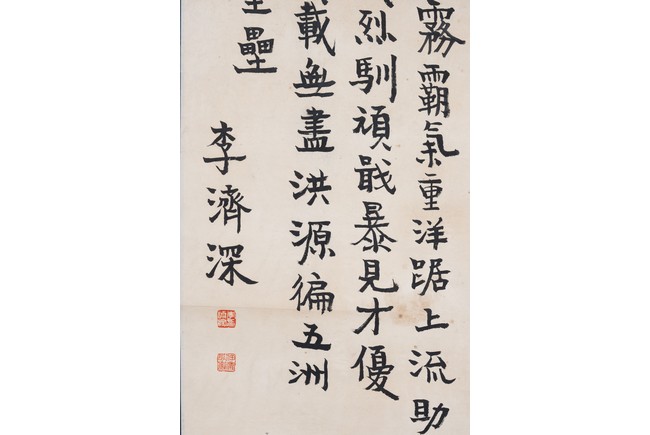 霧霸氣重洋踞上流助
烈馴頑戢暴見才優
載無盡洪源徧五洲
壘
李濟深